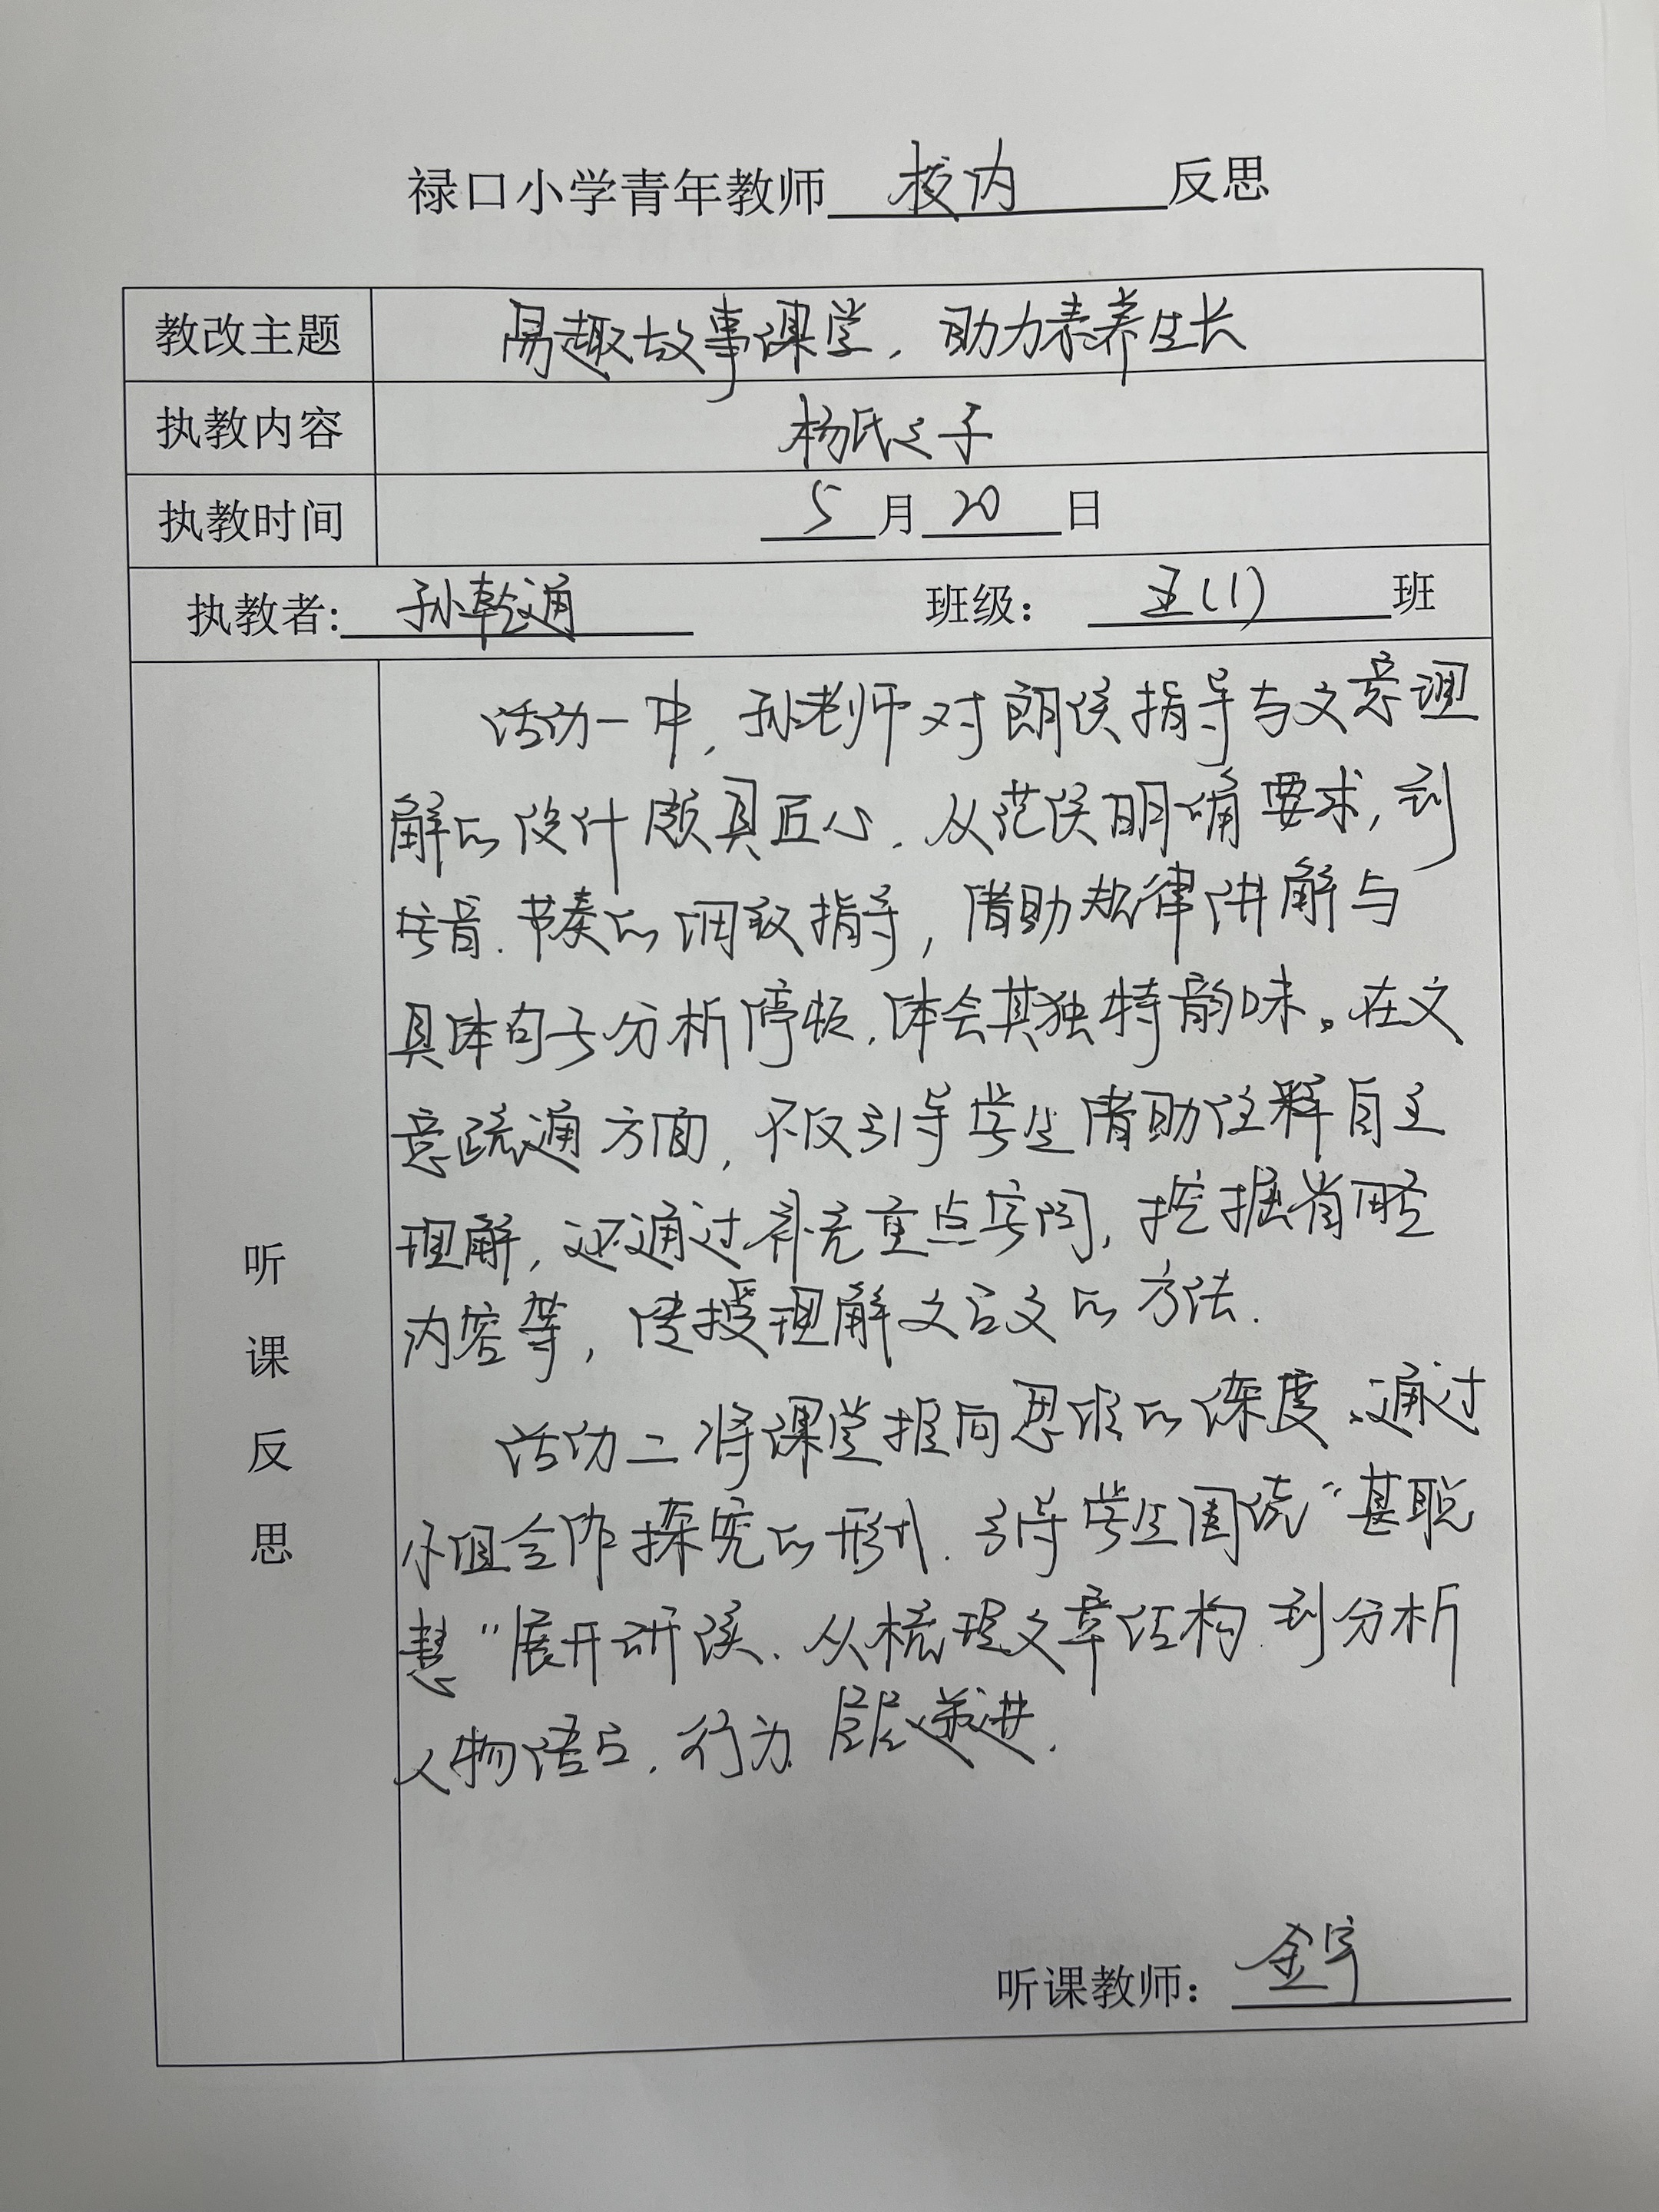 禄口小学青年教师 校内 反思
教改主题 易趣故事课堂，助力素养生长
执教内容 杨氏之子
执教时间 5月20日
执教者：孙乾通 班级：五(1)班
听课反思
活动一中，孙老师对朗读指导与文意理
解的设计颇具匠心，从范读明确要求，到
字音、节奏的细致指导，借助规律讲解与
具体句子分析停顿，体会其独特韵味。在文
意疏通方面，不仅引导学生借助注释自主
理解，还通过补充重点字词，挖掘省略
内容等，传授理解文言文的方法.
活动二将课堂推向思维的深度，通过
小组合作探究的形式，引导学生围绕“甚聪
慧”展开研读，从梳理文章结构到分析
人物语言，行为，层层递进.
听课教师：金宇